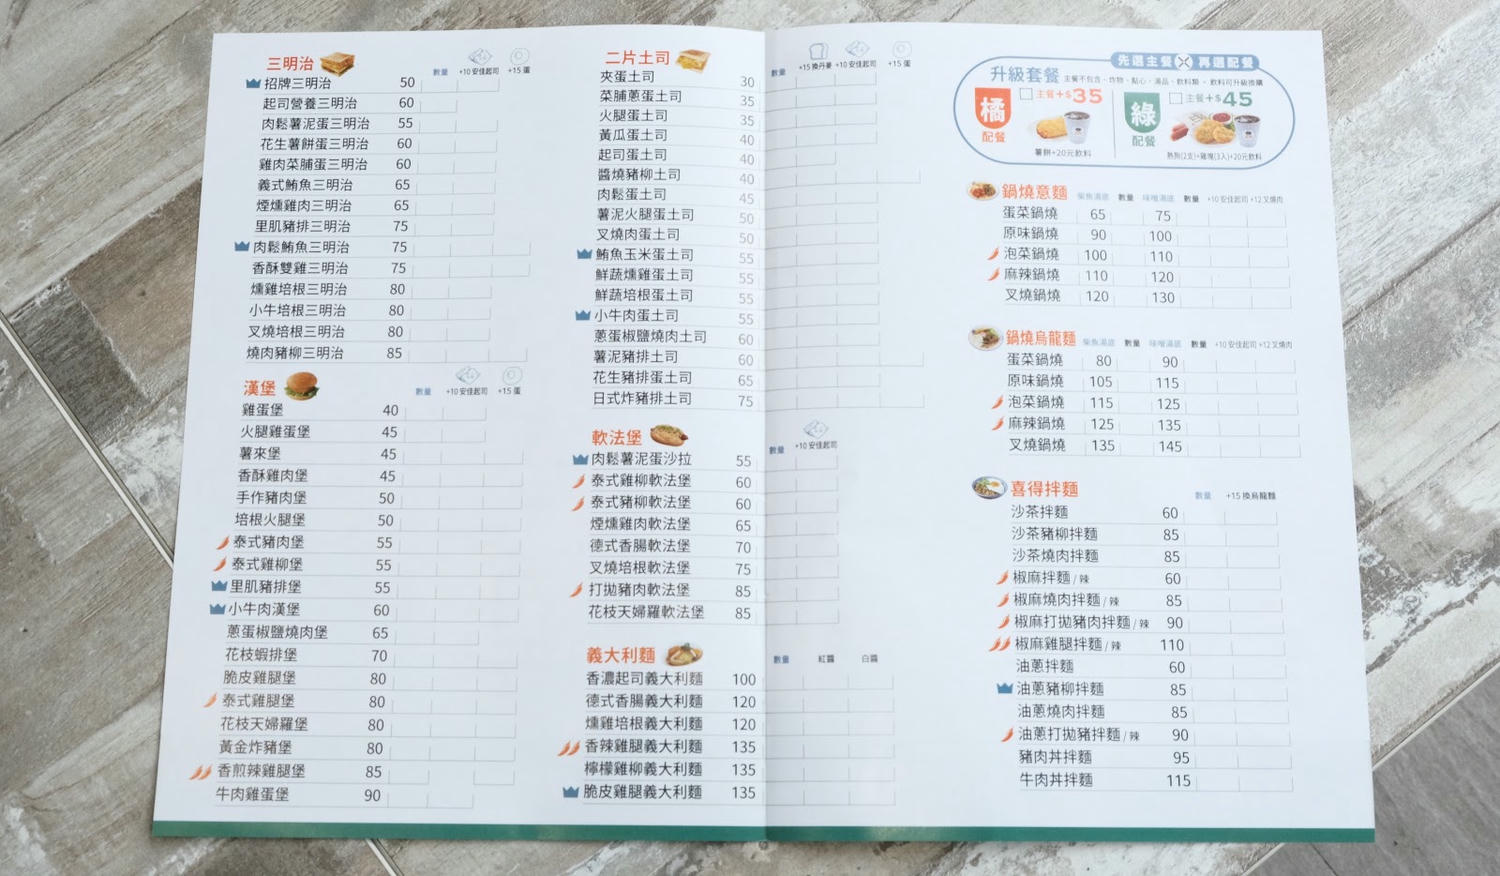 三明治 數量 +10 安佳起司 +15 蛋
招牌三明治 50
起司營養三明治 60
肉鬆薯泥蛋三明治 55
花生薯餅蛋三明治 60
雞肉菜脯蛋三明治 60
義式鮪魚三明治 65
煙燻雞肉三明治 65
里肌豬排三明治 75
肉鬆鮪魚三明治 75
香酥雙雞三明治 75
燻雞培根三明治 80
小牛培根三明治 80
叉燒培根三明治 80
燒肉豬柳三明治 85
漢堡 數量 +10 安佳起司 +15 蛋
雞蛋堡 40
火腿雞蛋堡 45
薯來堡 45
香酥雞肉堡 45
手作豬肉堡 50
培根火腿堡 50
泰式豬肉堡 55
泰式雞柳堡 55
里肌豬排堡 55
小牛肉漢堡 60
蔥蛋椒鹽燒肉堡 65
花枝蝦排堡 70
脆皮雞腿堡 80
泰式雞腿堡 80
花枝天婦羅堡 80
黃金炸豬堡 80
香煎辣雞腿堡 85
牛肉雞蛋堡 90
二片土司 數量 +15 換丹麥 +10 安佳起司 +15 蛋
夾蛋土司 30
菜脯蔥蛋土司 35
火腿蛋土司 35
黃瓜蛋土司 40
起司蛋土司 40
醬燒豬柳土司 40
肉鬆蛋土司 45
薯泥火腿蛋土司 50
叉燒肉蛋土司 50
鮪魚玉米蛋土司 55
鮮蔬燻雞蛋土司 55
鮮蔬培根蛋土司 55
小牛肉蛋土司 55
蔥蛋椒鹽燒肉土司 60
薯泥豬排土司 60
花生豬排蛋土司 65
日式炸豬排土司 75
軟法堡 數量 +10 安佳起司
肉鬆薯泥蛋沙拉 55
泰式雞柳軟法堡 60
泰式豬柳軟法堡 60
煙燻雞肉軟法堡 65
德式香腸軟法堡 70
叉燒培根軟法堡 75
打拋豬肉軟法堡 85
花枝天婦羅軟法堡 85
義大利麵 數量 紅醬 白醬
香濃起司義大利麵 100
德式香腸義大利麵 120
燻雞培根義大利麵 120
香辣雞腿義大利麵 135
檸檬雞柳義大利麵 135
脆皮雞腿義大利麵 135
先選主餐 再選配餐
升級套餐 主餐不包含、炸物、點心、湯品、飲料類，飲料可升級換購
橘 配餐 主餐+$35
薯餅+20元飲料
綠 配餐 主餐+$45
熱狗(2支)+雞塊(3入)+20元飲料
鍋燒意麵 柴魚湯底 數量 味噌湯底 數量 +10 安佳起司 +12 叉燒肉
蛋菜鍋燒 65 75
原味鍋燒 90 100
泡菜鍋燒 100 110
麻辣鍋燒 110 120
叉燒鍋燒 120 130
鍋燒烏龍麵 柴魚湯底 數量 味噌湯底 數量 +10 安佳起司 +12 叉燒肉
蛋菜鍋燒 80 90
原味鍋燒 105 115
泡菜鍋燒 115 125
麻辣鍋燒 125 135
叉燒鍋燒 135 145
喜得拌麵 數量 +15 換烏龍麵
沙茶拌麵 60
沙茶豬柳拌麵 85
沙茶燒肉拌麵 85
椒麻拌麵/辣 60
椒麻燒肉拌麵/辣 85
椒麻打拋豬肉拌麵/辣 90
椒麻雞腿拌麵/辣 110
油蔥拌麵 60
油蔥豬柳拌麵 85
油蔥燒肉拌麵 85
油蔥打拋豬拌麵/辣 90
豬肉丼拌麵 95
牛肉丼拌麵 115